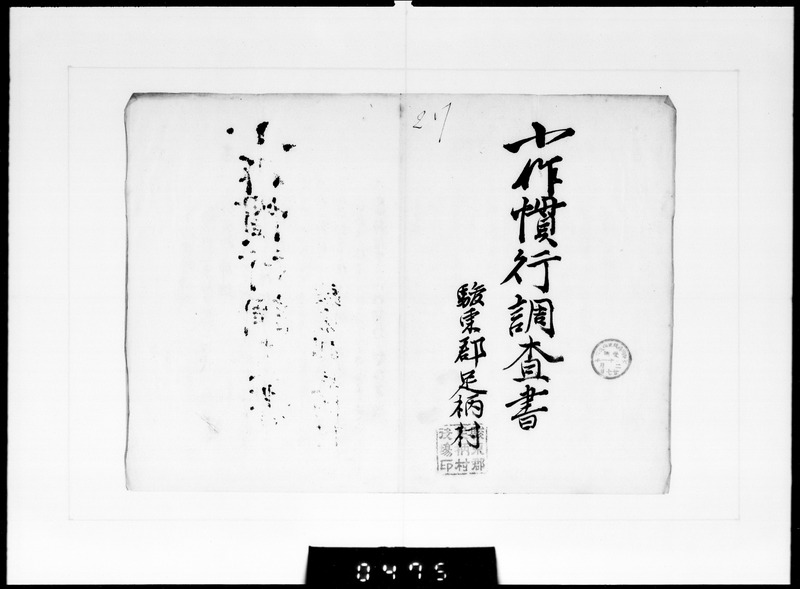 小作慣行調査書
駿東郡足柄村
駿東郡
足柄村
役場印
27
0475